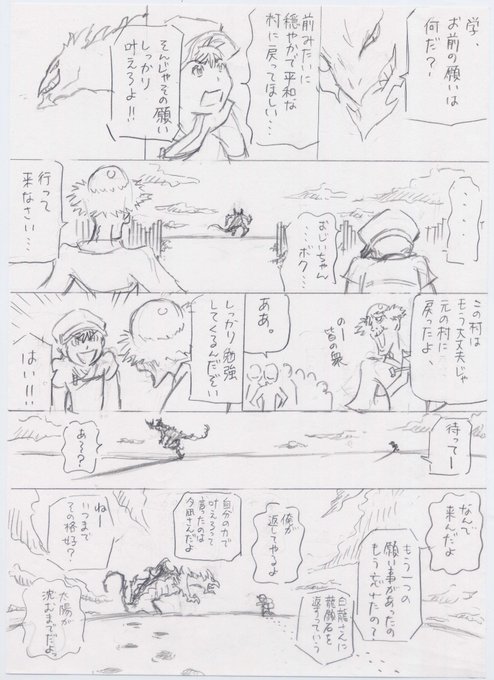 学、
お前の願いは
何だ？
前みたいに
穏やかで平和な
村に戻ってほしい…
そんじゃその願い
しっかり
叶えろよ!!
‥‥
おじいちゃん
…ボク…
行って
来なさい…
この村は
もう大丈夫じゃ
元の村に
戻ったよ、
のー
皆の衆
ああ。
しっかり勉強
してくるんだぞい
はい!!
待ってー
あ〜？
なんで
来んだよ
もう一つの
願い事があったの
もう忘れたの？
白龍さんに
龍願石を
返すっていう
俺が
返してやるよ
自分の力で
叶えろって
言ったのは
夕凪さんだよ
ねー
いつまで
その格好？
太陽が
沈むまでだよ。